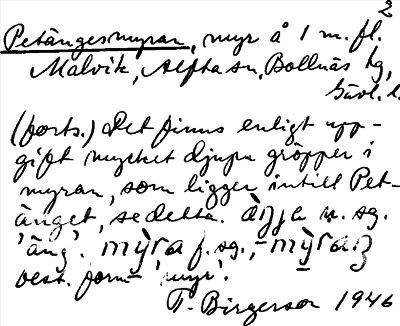 2
Petängesmyran, myr å 1 m. fl.
Malvik, Alfta sn, Bollnäs tg,
Gävl. l.
(forts.) Det finns enligt upp-
gift mycket djupa gröpper i
myran, som ligger intill Pet-
änget, se detta. àŋja n. sg.
'äng'. mỳra f. sg., mỳraŋ
best. form 'myr'.
T. Birgerson 1946